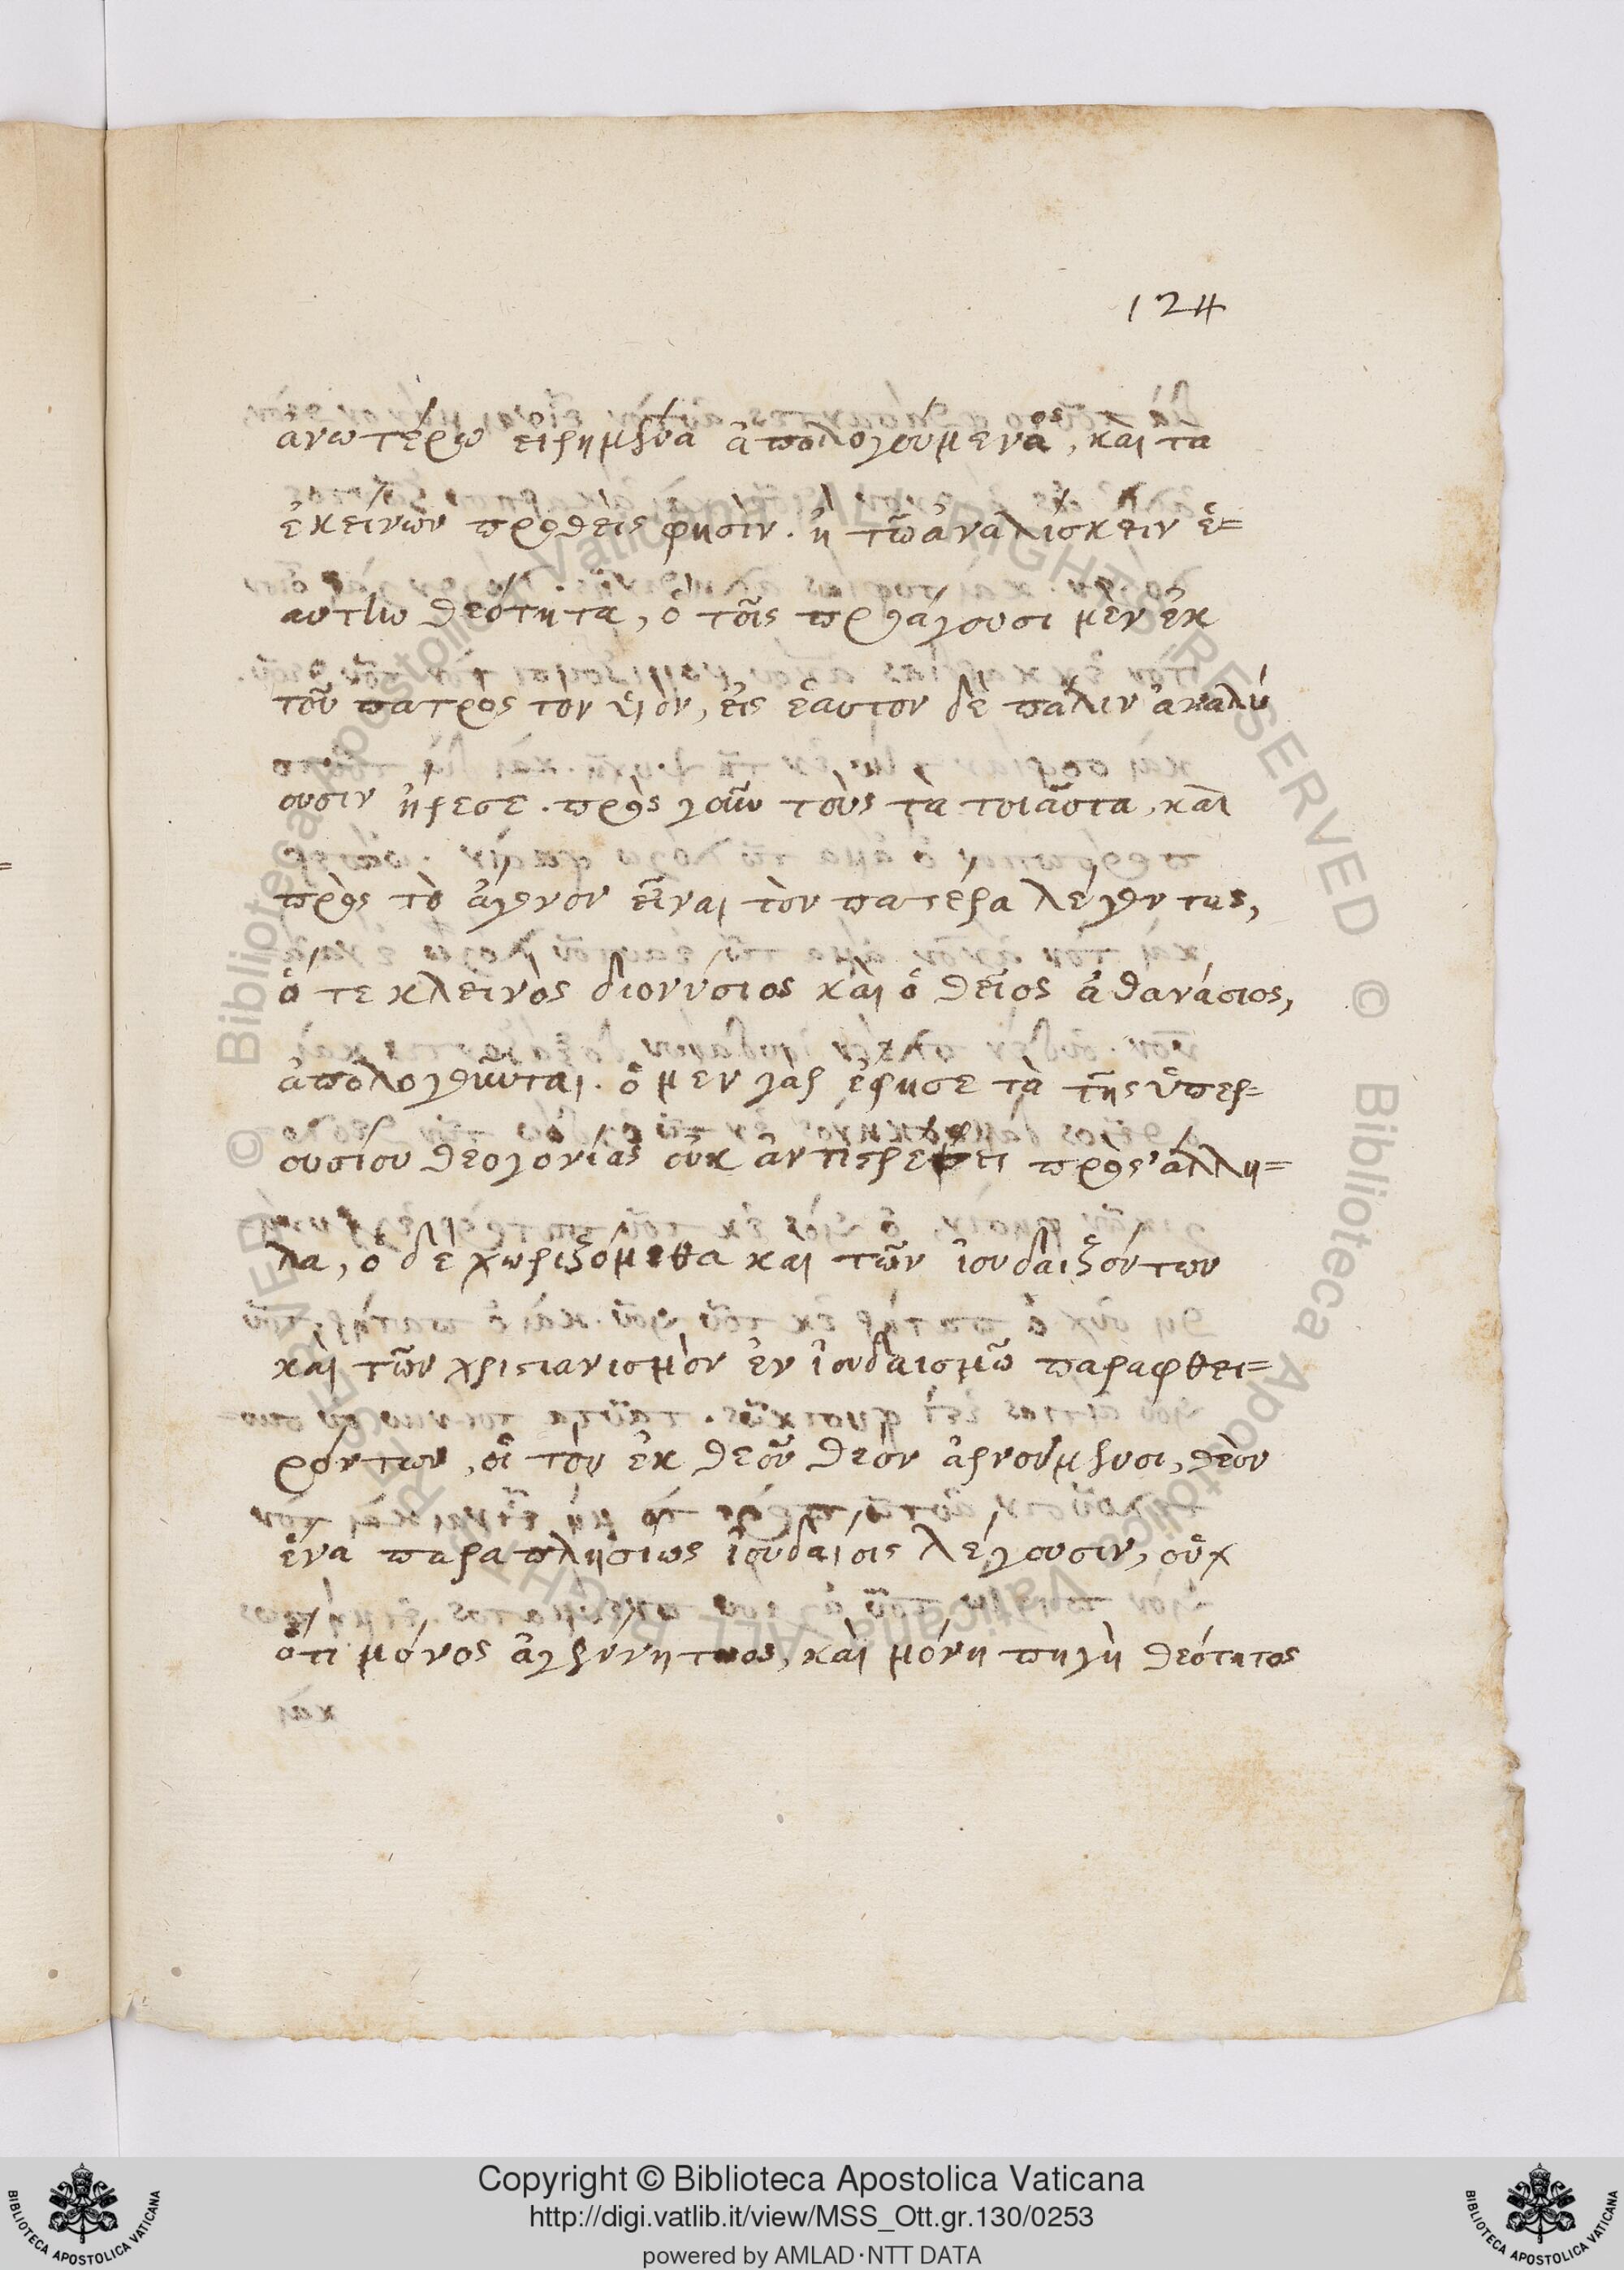 124
ἀνωτέρω εἰρημένα ἀπολογούμενος, καὶ τὰ
ἐκείνων προθεὶς φησίν. ἢ τῶ ἀναλίσκειν ἑ=
αυτὴν θεότητα, ὃ τοῖς προάγουσι μὲν ἐκ
τοῦ πατρὸς τὸν υἱὸν, εἰς ἑαυτὸν δὲ πάλιν ἀναλύ
ουσιν ἤρεσε. πρὸς γοῦν τοὺς τὰ τοιαῦτα, καὶ
πρὸς τὸ ἄγονον εἶναι τὸν πατέρα λέγοντας,
ὅ τε κλεινὸς διονύσιος καὶ ὁ θεῖος ἀθανάσιος,
ἀπολογοῦνται. ὁ μὲν γὰρ ἔφησε τὰ τῆς ὑπερ=
ουσίου θεογονίας οὐκ ἀντιστρέφει πρὸς ἄλλη=
λα, ὁ δὲ χωριζόμεθα καὶ τῶν ἰουδαιζόντων
καὶ τῶν χριστιανισμὸν ἐν ἰουδαισμῶ παραφθει=
ρόντων, οἳ τὸν ἐκ θεοῦ θεὸν ἀρνούμενοι, θεὸν
ἕνα παραπλησίως ἰουδαίοις λέγουσιν, οὐχ
ὅτι μόνος ἀγέννητος, καὶ μόνη πηγὴ θεότητος
Copyright © Biblioteca Apostolica Vaticana
http://digi.vatlib.it/view/MSS_Ott.gr.130/0253
powered by AMLAD·NTT DATA